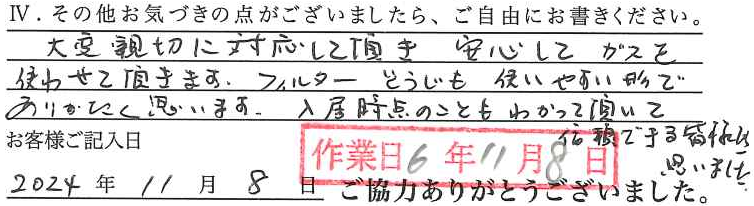 Ⅳ．その他お気づきの点がございましたら、ご自由にお書きください。
大変親切に対応して頂き 安心して ガスを
使わせて頂きます. フィルター そうじも 使いやすい形で
ありがたく思います. 入居時点のことも わかって頂いて
信頼できる皆様に
思いました
お客様ご記入日
作業日6年11月8日
2024 年 11 月 8 日 ご協力ありがとうございました。